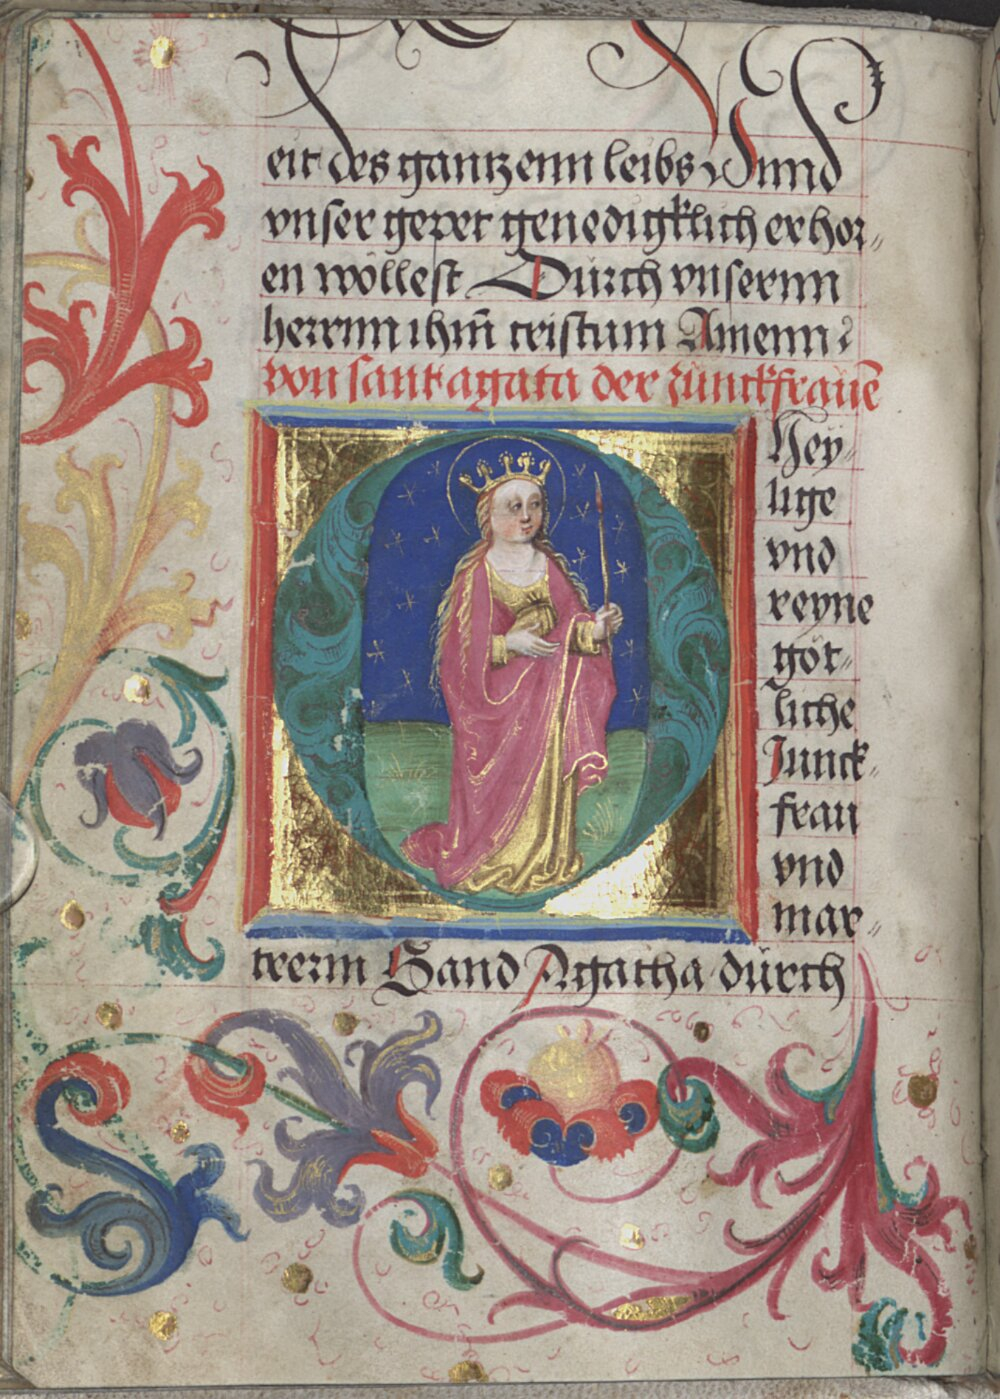 eit des gantzenn leibs Vnnd
vnser gepet genedigklich erhor„
en wöllest Dürch vnsernn
herrnn ihm̄ cristum Amenn
von sant agata der Junckfrauē
O Hey„
lige
vnd
reyne
göt„
liche
Junck„
frau
vnd
mar„
trerin Sand Agatha dürch